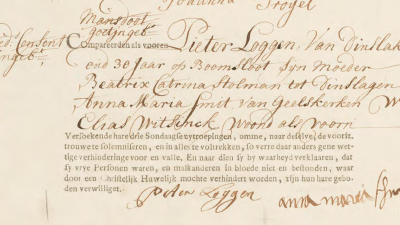 Johanna Troyel
Mansdoot
goetingeb.
ed. Consent
ingeb.
Compareerden als vooren Pieter Loggen, Van Dinslak
oud 30 Jaar op Boomsloot Syn Moeder
Beatrix Catrina Stolman tot Dinslagen
Anna Maria Smit van Geelskerken W
Elias Witsinck Woont als voorn
Versoekende hare drie Sondaagse uytroepingen, omme, naar deselve, de voorsz.
trouwe te solemniseren, en in alles te voltrekken, so verre daar anders gene wet-
tige verhinderinge voor en valle. En naar dien sy by waarheyd verklaarden, dat
sy vrye Personen waren, en malkanderen in bloede niet en bestonden, waar
door een Christelijk Huwelijk mochte verhindert worden, zijn hun hare gebo-
den verwilliget.
Peter Leggen
anna maria